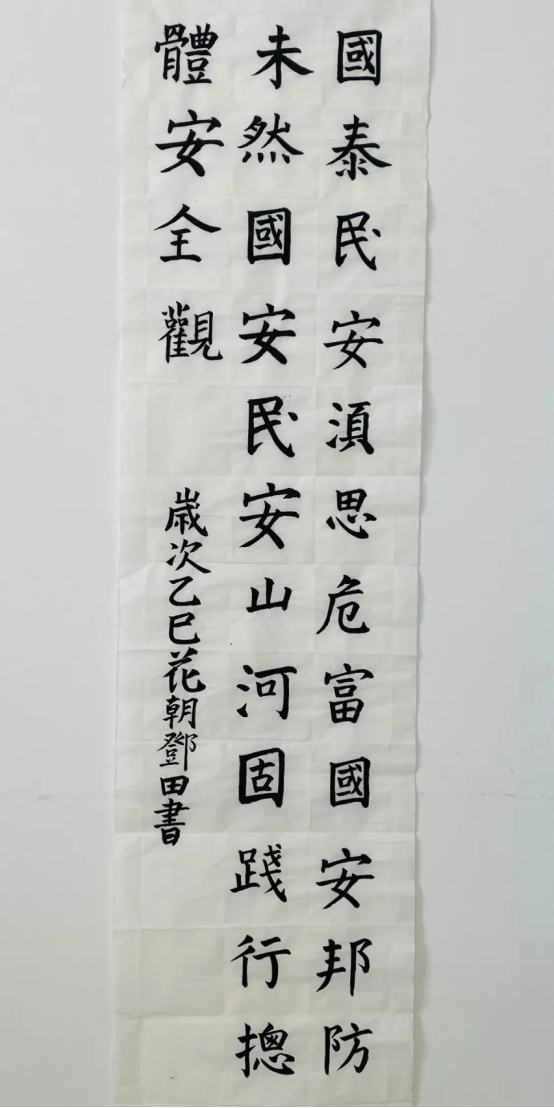 國泰民安湏思危富國安邦防
未然國安民安山河固踐行摠
體安全觀
歲次乙巳花朝鄧田書